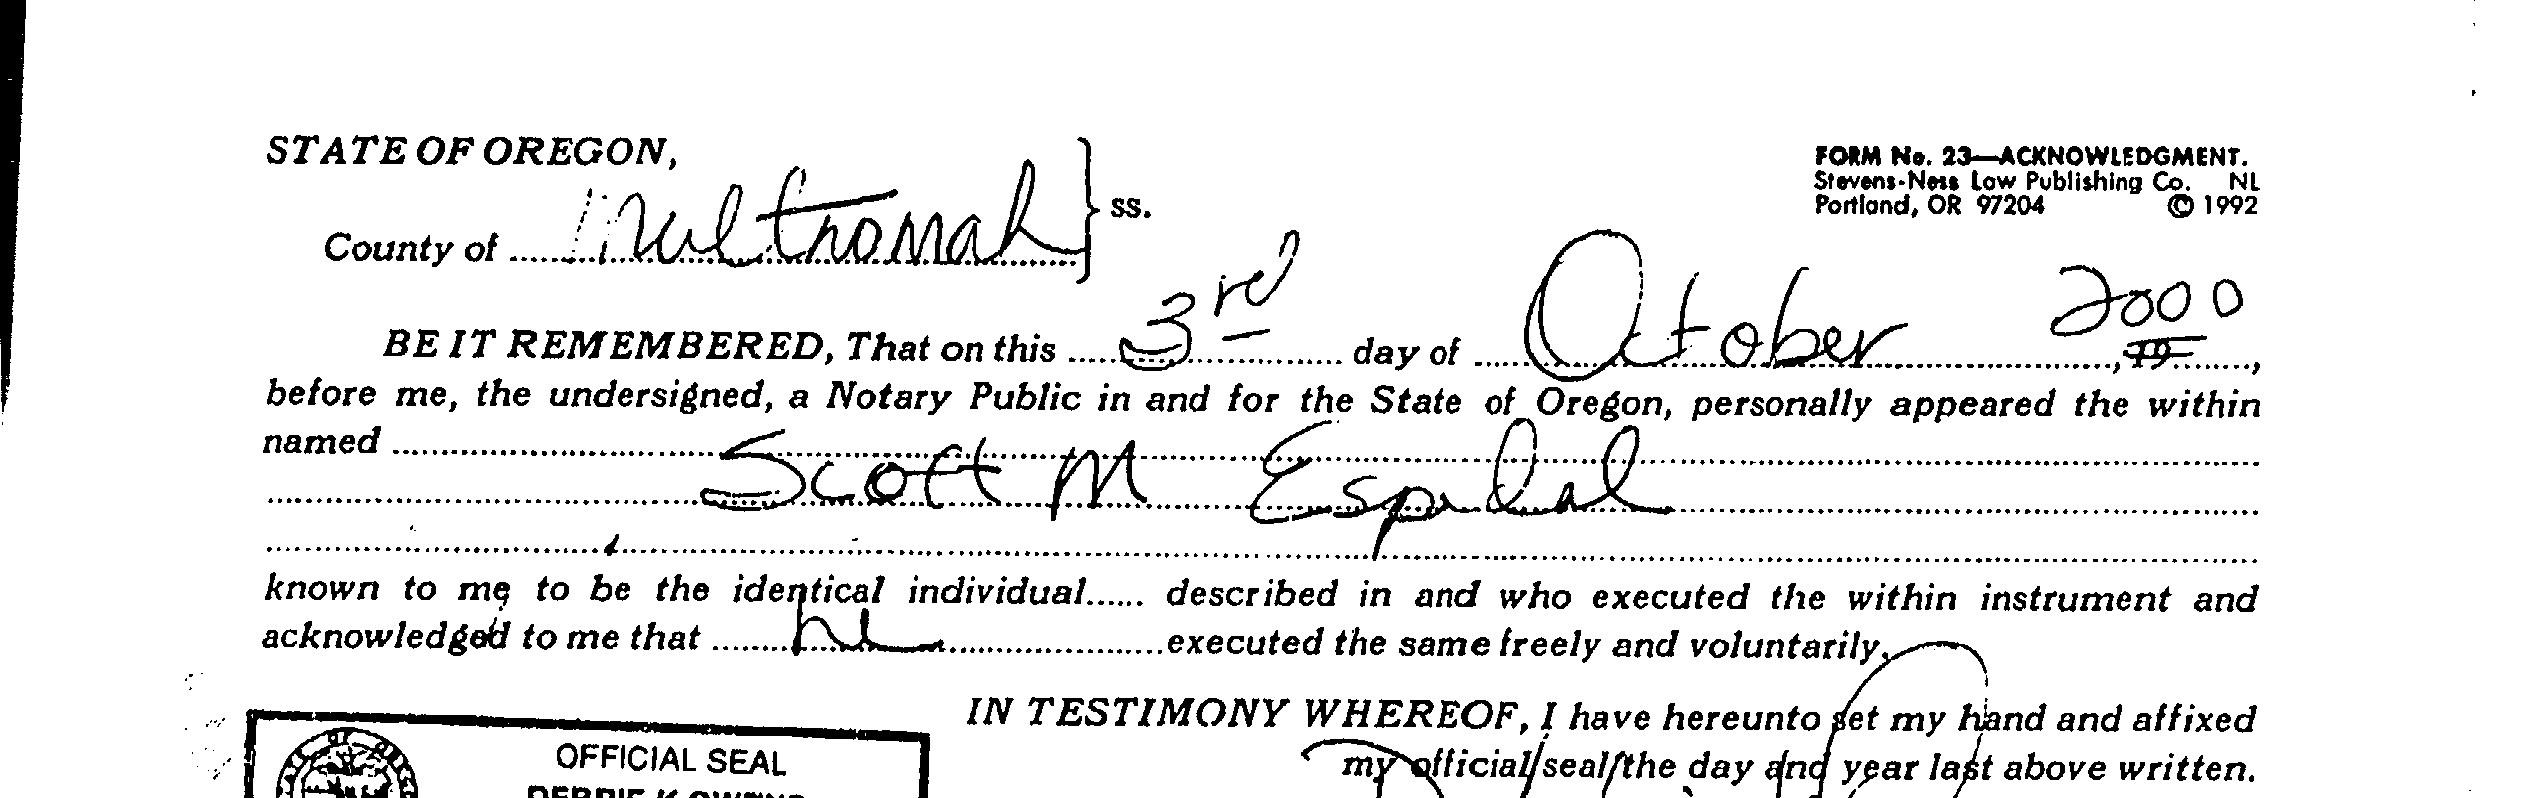 STATE OF OREGON,
County of Multnomah } ss.
FORM No. 23—ACKNOWLEDGMENT.
Stevens-Ness Law Publishing Co. NL
Portland, OR 97204 © 1992
BE IT REMEMBERED, That on this 3rd day of October 2000, 19,
before me, the undersigned, a Notary Public in and for the State of Oregon, personally appeared the within
named
Scott M
known to me to be the identical individual...... described in and who executed the within instrument and
acknowledged to me that he executed the same freely and voluntarily.
IN TESTIMONY WHEREOF, I have hereunto set my hand and affixed
my official seal the day and year last above written.
OFFICIAL SEAL